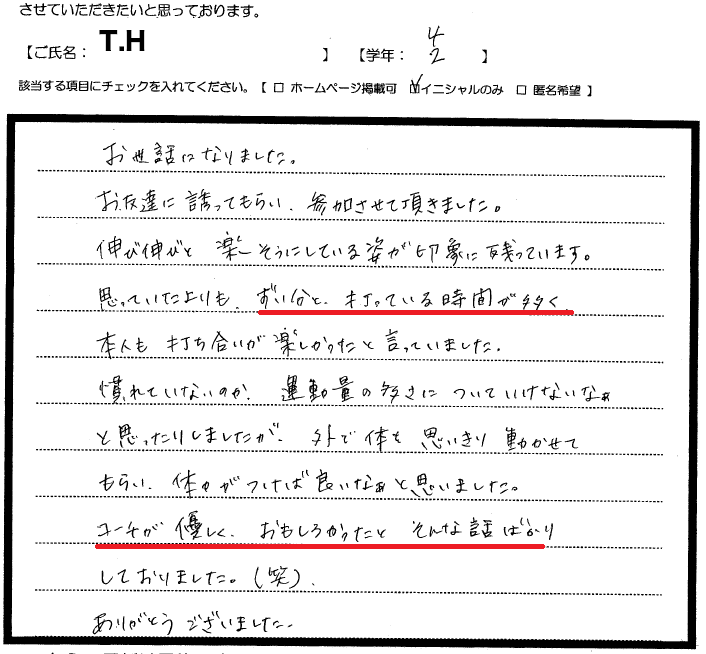 させていただきたいと思っております。
【ご氏名: T.H 】 【学年: 4 2 】
該当する項目にチェックを入れてください。【 □ ホームページ掲載可 ☑イニシャルのみ □ 匿名希望 】
お世話になりました。
お友達に誘ってもらい、参加させて頂きました。
伸び伸びと楽しそうにしている姿が印象に残っています。
思っていたよりも、ずい分と、打っている時間が多く、
本人も打ち合いが楽しかったと言っていました。
慣れていないのか、運動量の多さについていけないなぁ
と思ったりしましたが、外で体を思いきり動かせて
もらい、体力がつけば良いなぁと思いました。
コーチが優しく、おもしろかったとそんな話ばかり
しておりました。(笑).
ありがとうございました。